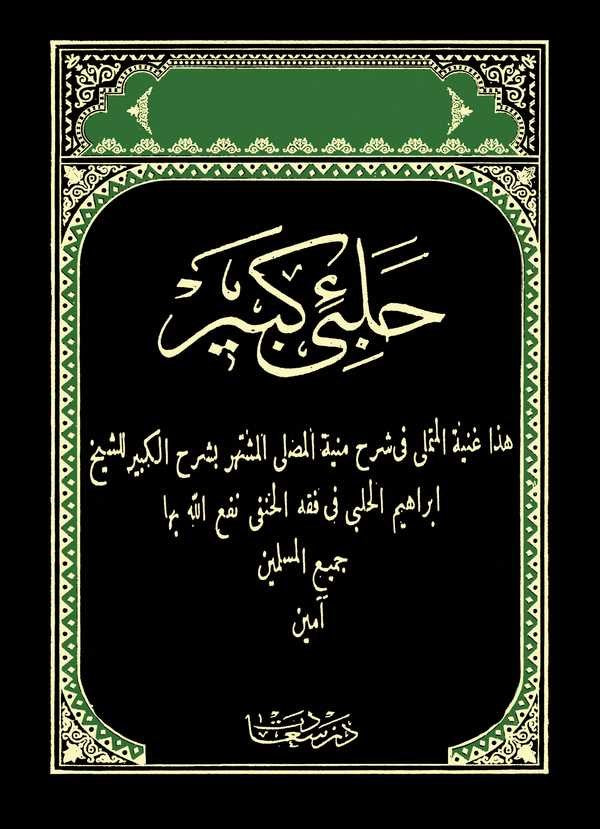 حلبئ كبير
هذا غنية المتملى فى شرح منية المصلى المشتهر بشرح الكبير للشيخ
ابراهيم الحلبى فى فقه الحنفى نفع الله بها
جميع المسلمين
آمين
درسعادت